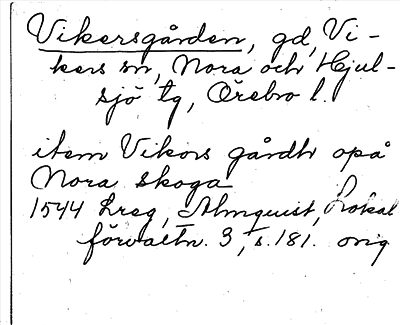 Vikersgården, gd, Vi-
kers sn, Nora och Hjul-
sjö tg, Örebro l.
item Vikors gårdh opå
Nora skoga
1544 Lreg, Almquist, Lokal
förvaltn. 3, s. 181. orig